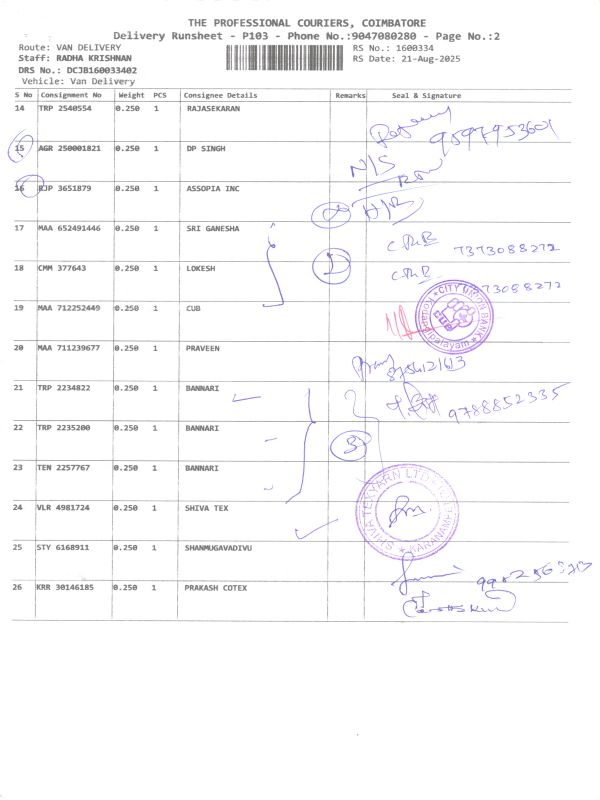 THE PROFESSIONAL COURIERS, COIMBATORE
Delivery Runsheet - P103 - Phone No.:9047080280 - Page No.:2
Route: VAN DELIVERY RS No.: 1600334
Staff: RADHA KRISHNAN RS Date: 21-Aug-2025
DRS No.: DCJB160033402
Vehicle: Van Delivery
S No Consignment No Weight PCS Consignee Details Remarks Seal & Signature
14 TRP 2540554 0.250 1 RAJASEKARAN
9597953601
15 AGR 250001821 0.250 1 DP SINGH N/S
16 RJP 3651879 0.250 1 ASSOPIA INC
17 MAA 652491446 0.250 1 SRI GANESHA 7373088272
18 CMM 377643 0.250 1 LOKESH D 73088272
19 MAA 712252449 0.250 1 CUB CITY UNION BANK
20 MAA 711239677 0.250 1 PRAVEEN
21 TRP 2234822 0.250 1 BANNARI 9788852335
22 TRP 2235200 0.250 1 BANNARI 3
23 TEN 2257767 0.250 1 BANNARI
24 VLR 4981724 0.250 1 SHIVA TEX SHIVA TEXYARN LTD
25 STY 6168911 0.250 1 SHANMUGAVADIVU
26 KRR 30146185 0.250 1 PRAKASH COTEX